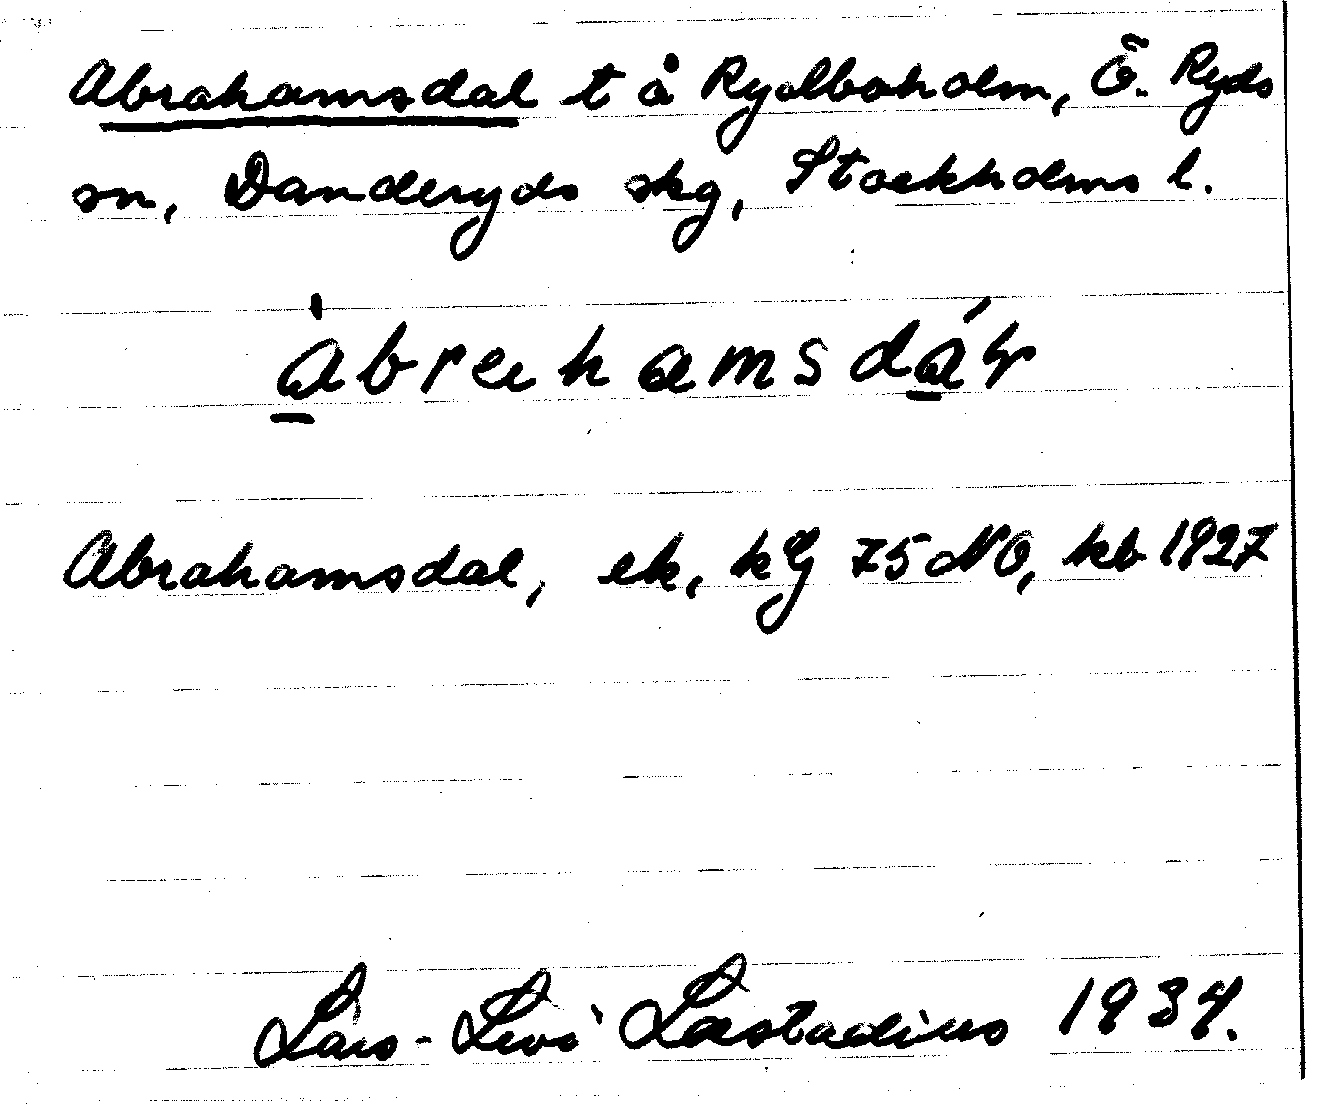 Abrahamsdal t å Rydboholm, Ö. Ryds
sn, Danderyds skg, Stockholms l.
Abrahamsdal, ek, kg 75 NO, kb 1927
Lars-Levi Læstadius 1934.